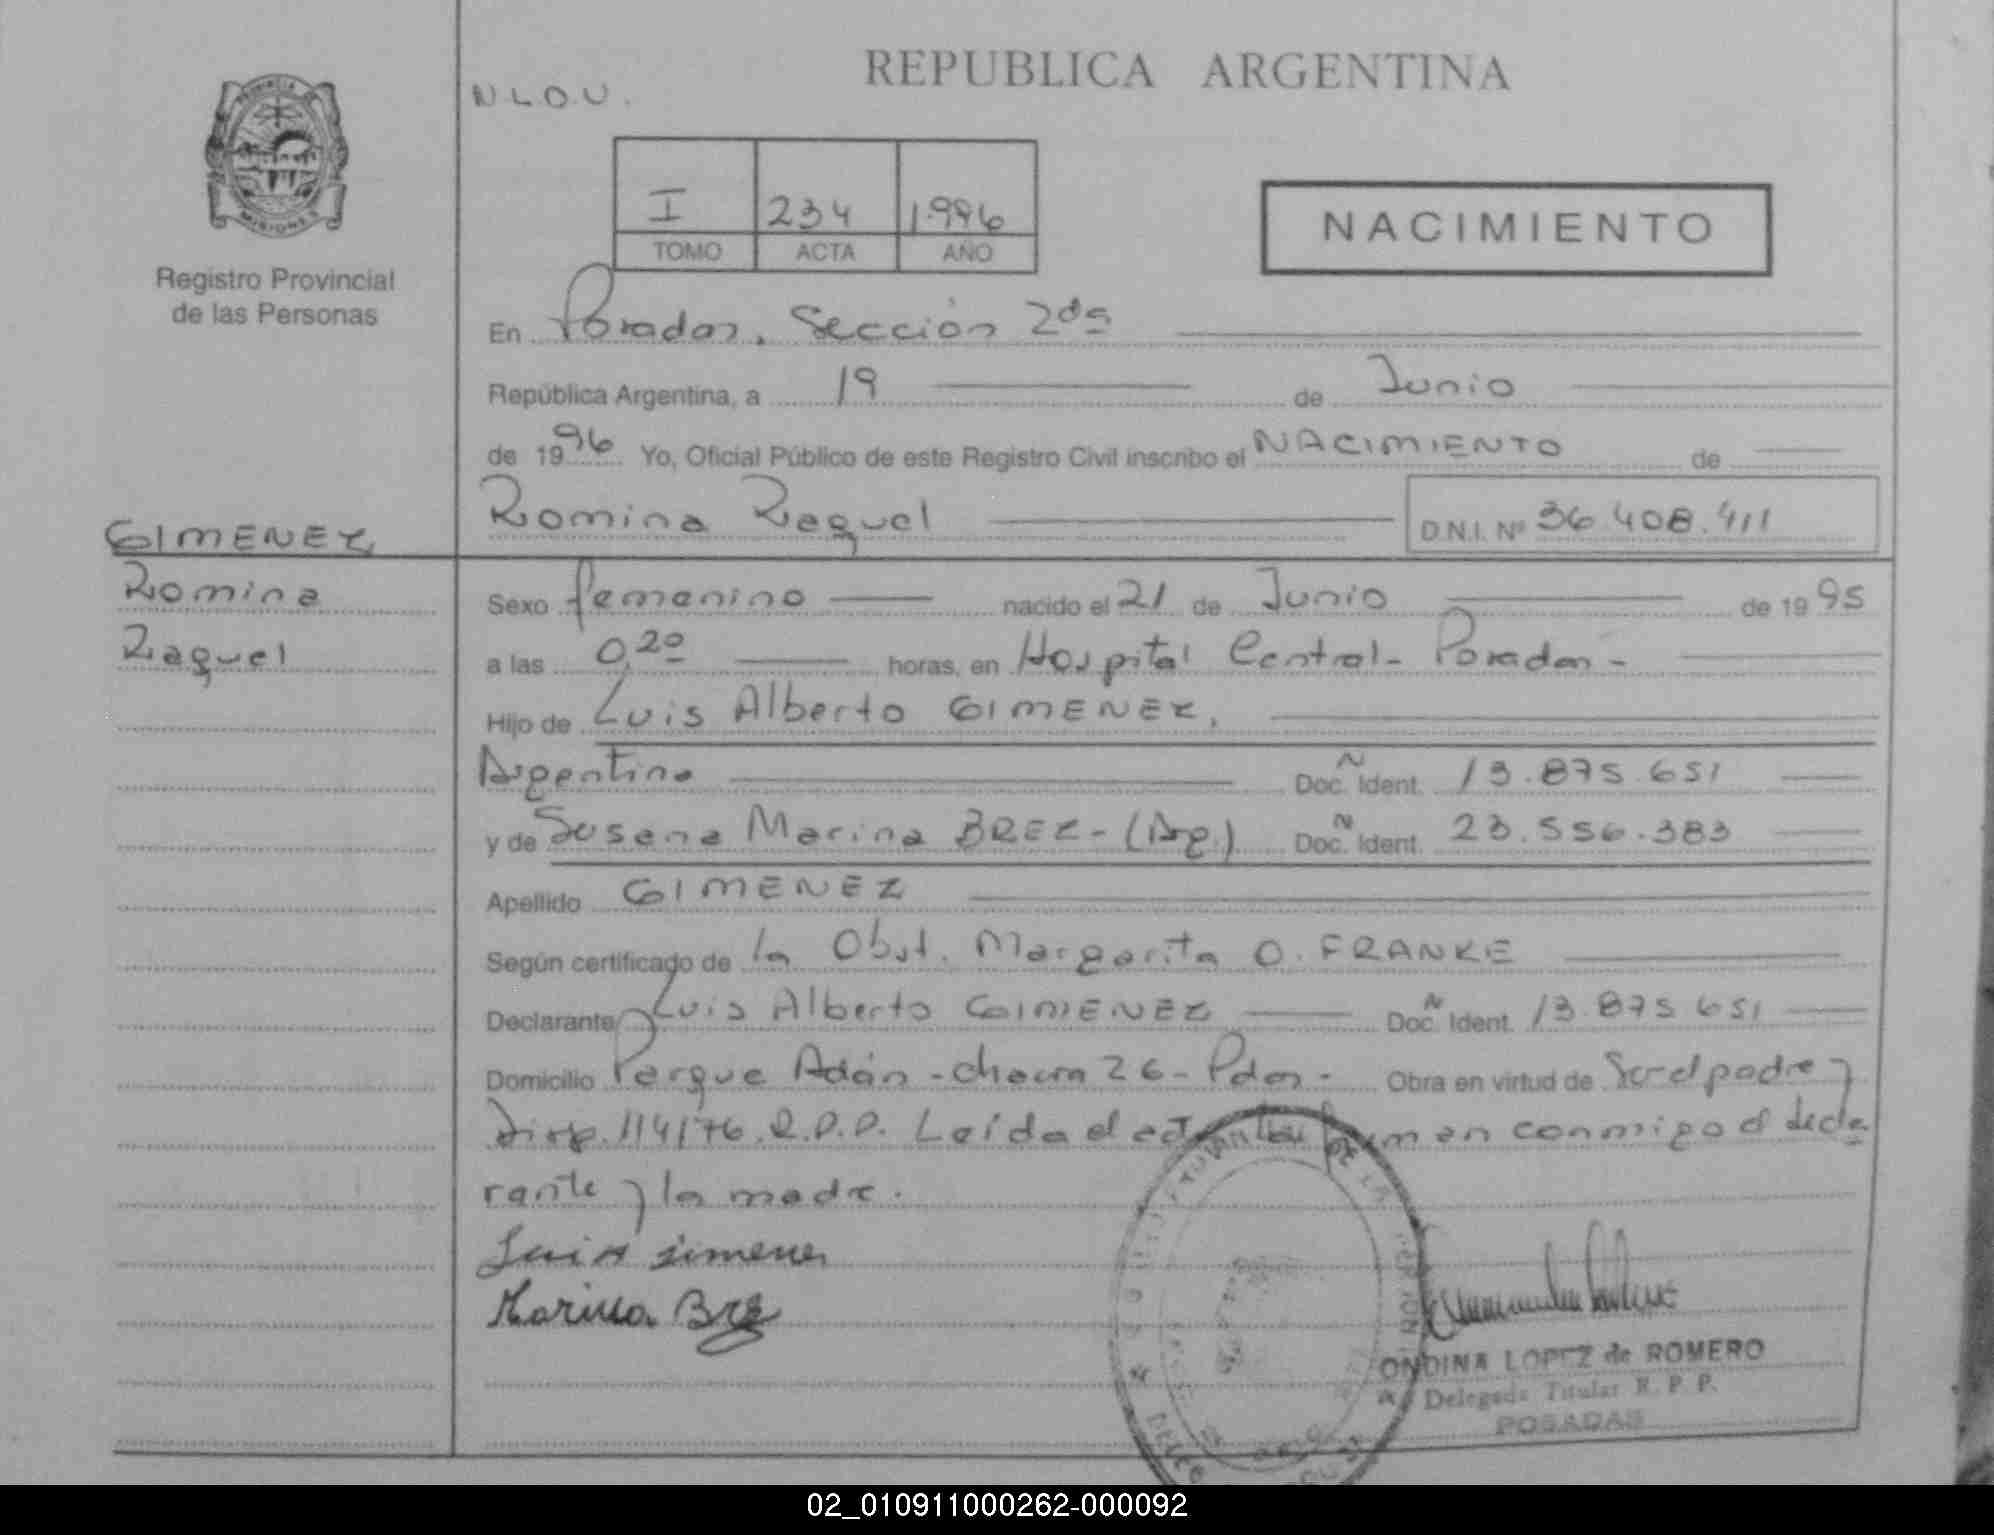 REPUBLICA ARGENTINA
N.L.O.U.
I 234 1.996
TOMO ACTA AÑO
NACIMIENTO
PROVINCIA DE MISIONES
Registro Provincial
de las Personas
En Posadas, Sección 2da
República Argentina, a 19 de Junio
de 1996 Yo, Oficial Público de este Registro Civil inscribo el NACIMIENTO de
Romina Raquel D.N.I. Nº 36.408.411
GIMENEZ
Romina
Raquel
Sexo femenino nacido el 21 de Junio de 1995
a las 0,20 horas, en Hospital Central - Posadas -
Hijo de Luis Alberto GIMENEZ,
Argentino Doc. N Ident. 13.875.651
y de Susana Marina BREZ - (Arg.) Doc. N Ident. 23.556.383
Apellido GIMENEZ
Según certificado de la Obst. Margarita O. FRANKE
Declarante Luis Alberto GIMENEZ Doc. N Ident. 13.875.651
Domicilio Parque Adán - chacra 26 - Pdas - Obra en virtud de Ser el padre y
Disp. 114/76.R.P.P. Leída el acta la firman conmigo el decla
rante y la madre.
Luis Jimenez
Marina Brez
ONDINA LOPEZ de ROMERO
Delegada Titular R. P. P.
POSADAS
02_010911000262-000092